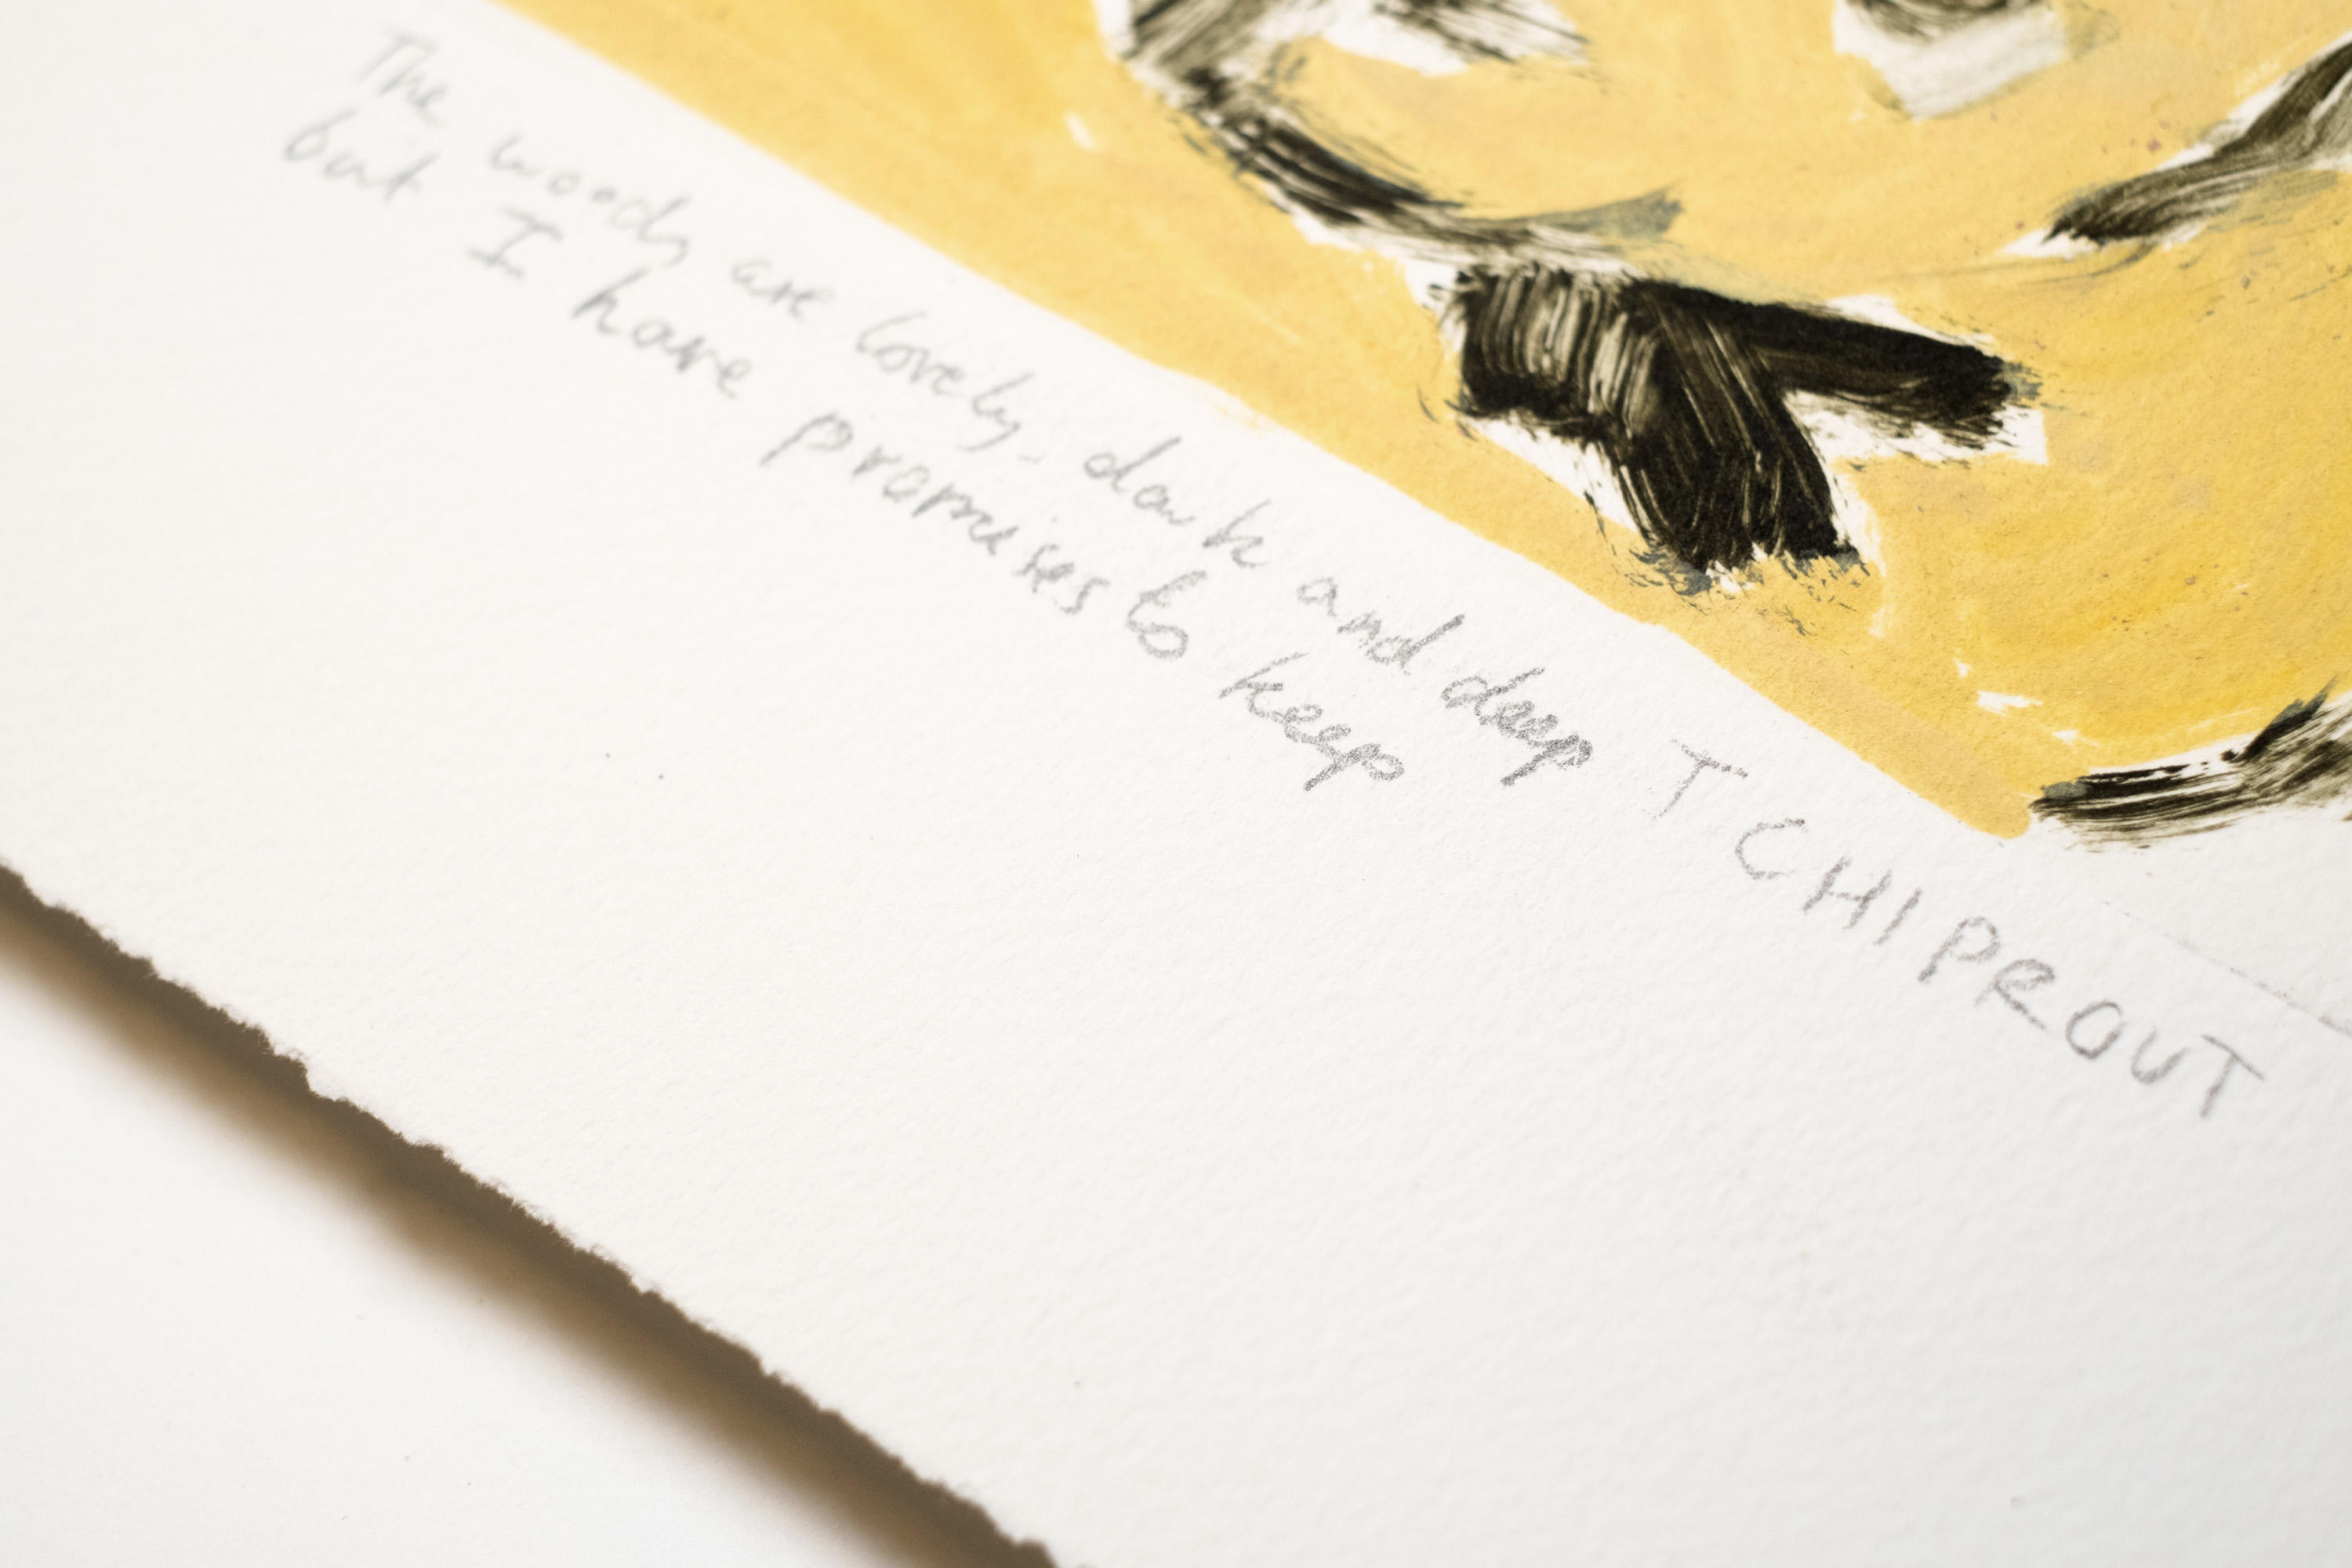 The woods are lovely, dark and deep T CHIPROUT
but I have promises to keep